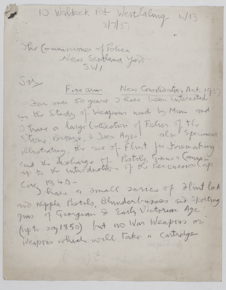 10 Ealing W13
3/7/37
The Commissioner of Police
New Scotland Yard
SW1
Sir,
Firearms New Consolidation Act 1937
For over 50 years I have been interested
in the Study of Weapons used by Man and
I have a large Collection of Relics of the
Stone, Bronze, & Iron Ages also Specimens
illustrating the use of Flint for Firemaking
and the discharge of Pistols, Guns
up to the introduction of the Percussion Cap
Circ 1840-
I have a small series of Flint lock
and Nipple Pistols, Blunderbusses and Sporting
guns of Georgian & Early Victorian Age
(up to say 1850) but no War Weapons or
Weapons which will take a Cartridge